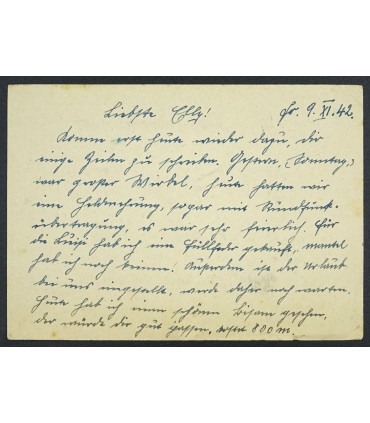 Liebste Elly! Fr. 9. XI. 42.
Komme erst heute wieder dazu, dir
einige Zeilen zu schreiben. Gestern, (Sonntag,)
war großer Wirbel, heute hatten wir
eine Heldenehrung, sogar mit Rundfunk-
übertragung, es war sehr feierlich. Für
die Luisi hab ich eine Füllfeder gekauft, mantel
hab ich noch keinen! Außerdem ist der Urlaub
bei uns eingestellt, werde daher noch warten.
Heute hab ich einen schönen Bisam gesehen,
der würde dir gut passen, kostet 800 M.